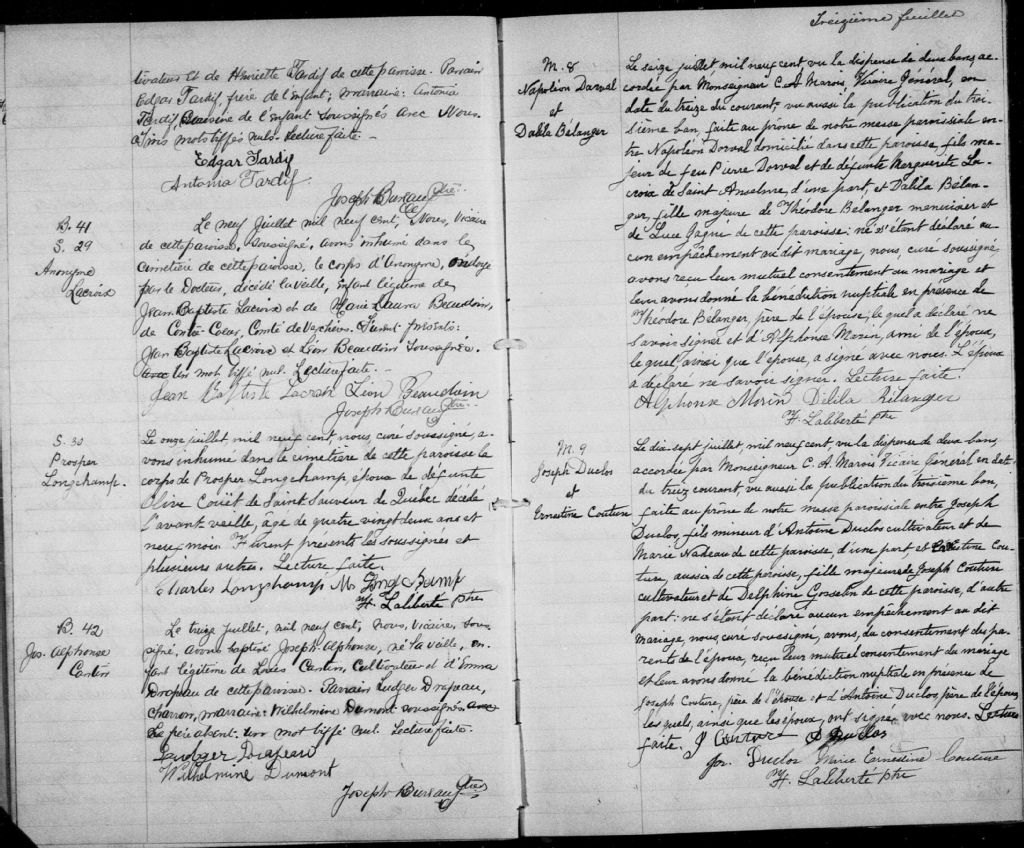 tivateur et de Henriette Tardif de cette paroisse. Parrain
Edgar Tardif, frère de l'enfant; marraine: Antonia
Tardif, cousine de l'enfant soussignés avec Nous.
Trois mots biffés nuls. Lecture faite. -
Edgar Tardif
Antonia Tardif
Joseph Bureau Ptre.
B. 41
S. 29
Anonyme
Lacroix
Le neuf Juillet mil neuf cent, Nous, Vicaire
de cette paroisse, soussigné, avons inhumé dans le
cimetière de cette paroisse, le corps d'Anonyme, ondoyé
par le Docteur, décédé la veille, enfant légitime de
Jean-Baptiste Lacroix et de Marie Laura Beaudoin,
de Contrecoeur, Comté de Verchères. Furent présents:
Jean Baptiste Lacroix et Léon Beaudoin soussignés.
avec Un mot biffé nul. Lecture faite. -
Jean Baptiste Lacroix Léon Beaudoin
Joseph Bureau Ptre.
S. 30
Prosper
Longchamp.
Le onze juillet mil neuf cent nous, curé soussigné, a-
vons inhumé dans le cimetière de cette paroisse le
corps de Prosper Longchamp, époux de défunte
Olive Couët de Saint Sauveur de Québec décédé
l'avant veille, age de quatre vingt deux ans et
neuf mois. Furent présents les soussignés et
plusieurs autres. Lecture faite.
Charles Longchamp
F. Laliberté ptre
B. 42
Jos. Alphonse
Cantin
Le treize Juillet, mil neuf cent, nous, Vicaire, sous-
signé, avons baptisé Joseph-Alphonse, né la veille, en-
fant légitime de Louis Cantin, Cultivateur et d'Emma
Drapeau de cette paroisse. Parrain Ludger Drapeau,
charron, marraine: Wilhelmine Dumont soussignés avec
Le père absent. Un mot biffé nul. Lecture faite.
Ludger Drapeau
Wilhelmine Dumont
Joseph Bureau Ptre.
Treizième feuillet
M. 8
Napoléon Dorval
et
Dalila Bélanger
Le seize juillet mil neuf cent vu la dispense de deux bans, ac-
cordée par Monseigneur C. A. Marois, Vicaire Général, en
date du treize du courant, vu aussi la publication du troi-
sième ban, faite au prône de notre messe paroissiale en-
tre Napoléon Dorval domicilié dans cette paroisse, fils ma-
jeur de feu Pierre Dorval et de défunte Marguerite La-
croix de Saint Anselme, d'une part, et Dalila Bélan-
ger, fille majeure de Théodore Bélanger menuisier et
de Luce Gagné de cette paroisse: ne s'étant déclaré au-
cun empêchement au dit mariage, nous, curé soussigné,
avons reçu leur mutuel consentement au mariage et
leur avons donné la bénédiction nuptiale en présence de
Théodore Bélanger, père de l'épouse, lequel a déclaré ne
savoir signer et d'Alphonse Morin, ami de l'époux,
lequel ainsi que l'épouse, a signé avec nous. L'époux
a déclaré ne savoir signer. Lecture faite.
Alphonse Morin Dilila Bélanger
F. Laliberté ptre
M. 9
Joseph Duclos
et
Ernestine Couture
Le dix sept juillet, mil neuf cent vu la dispense de deux bans,
accordée par Monseigneur C. A. Marois Vicaire Général en date
du treize courant, vu aussi la publication du troisième ban,
faite au prône de notre messe paroissiale entre Joseph
Duclos, fils mineur d'Antoine Duclos cultivateur et de
Marie Nadeau de cette paroisse, d'une part et Ernestine Cou-
ture, aussi de cette paroisse, fille majeure de Joseph Couture
cultivateur et de Delphine Gosselin de cette paroisse, d'autre
part: ne s'étant déclaré aucun empêchement au dit
mariage, nous, curé soussigné, avons, du consentement des pa-
rents de l'époux, reçu leur mutuel consentement du mariage
et leur avons donné la bénédiction nuptiale en présence de
Joseph Couture, père de l'épouse et d'Antoine Duclos, père de l'époux,
lesquels, ainsi que les époux, ont signé avec nous. Lecture
faite. J Couture A Duclos
Jos. Duclos Marie Ernestine Couture
F. Laliberté ptre